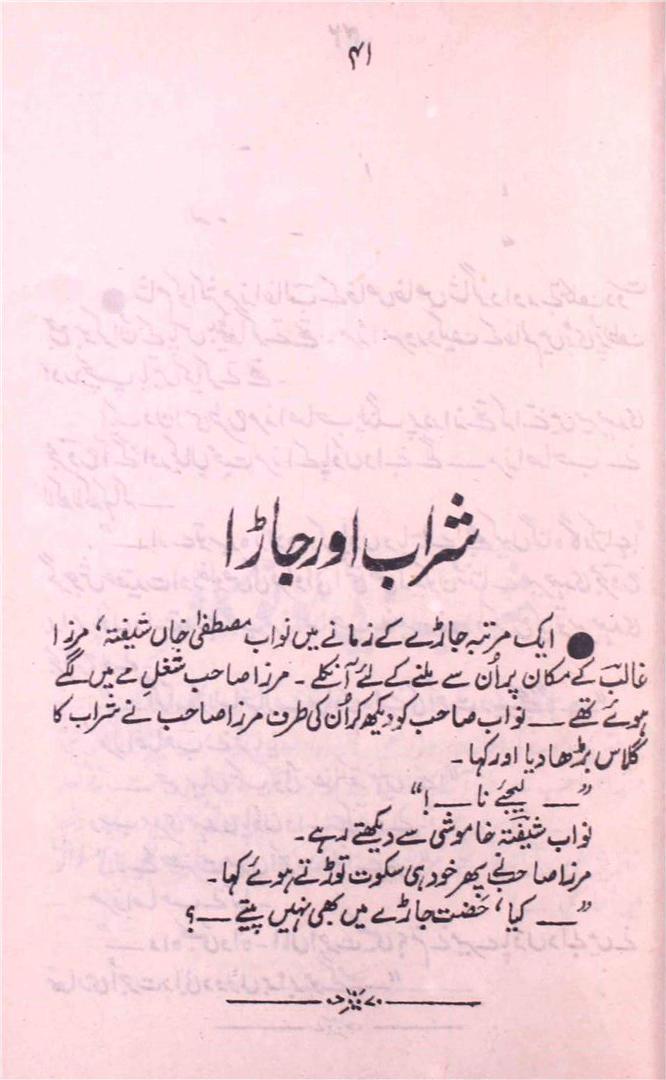 ۴۱
شراب اور جاڑا
● ایک مرتبہ جاڑے کے زمانے میں نواب مصطفیٰ خاں شیفتہ، مرزا
غالبؔ کے مکان پر اُن سے ملنے کے لئے آنکلے۔ مرزا صاحب شغلِ مے میں لگے
ہوئے تھے — نواب صاحب کو دیکھ کر اُن کی طرف مرزا صاحب نے شراب کا
گلاس بڑھا دیا اور کہا۔
”— لیجئے نا —!“
نواب شیفتہؔ خاموشی سے دیکھتے رہے۔
مرزا صاحب نے پھر خود ہی سکوت توڑتے ہوئے کہا۔
”— کیا، حضت جاڑے میں بھی نہیں پیتے —؟